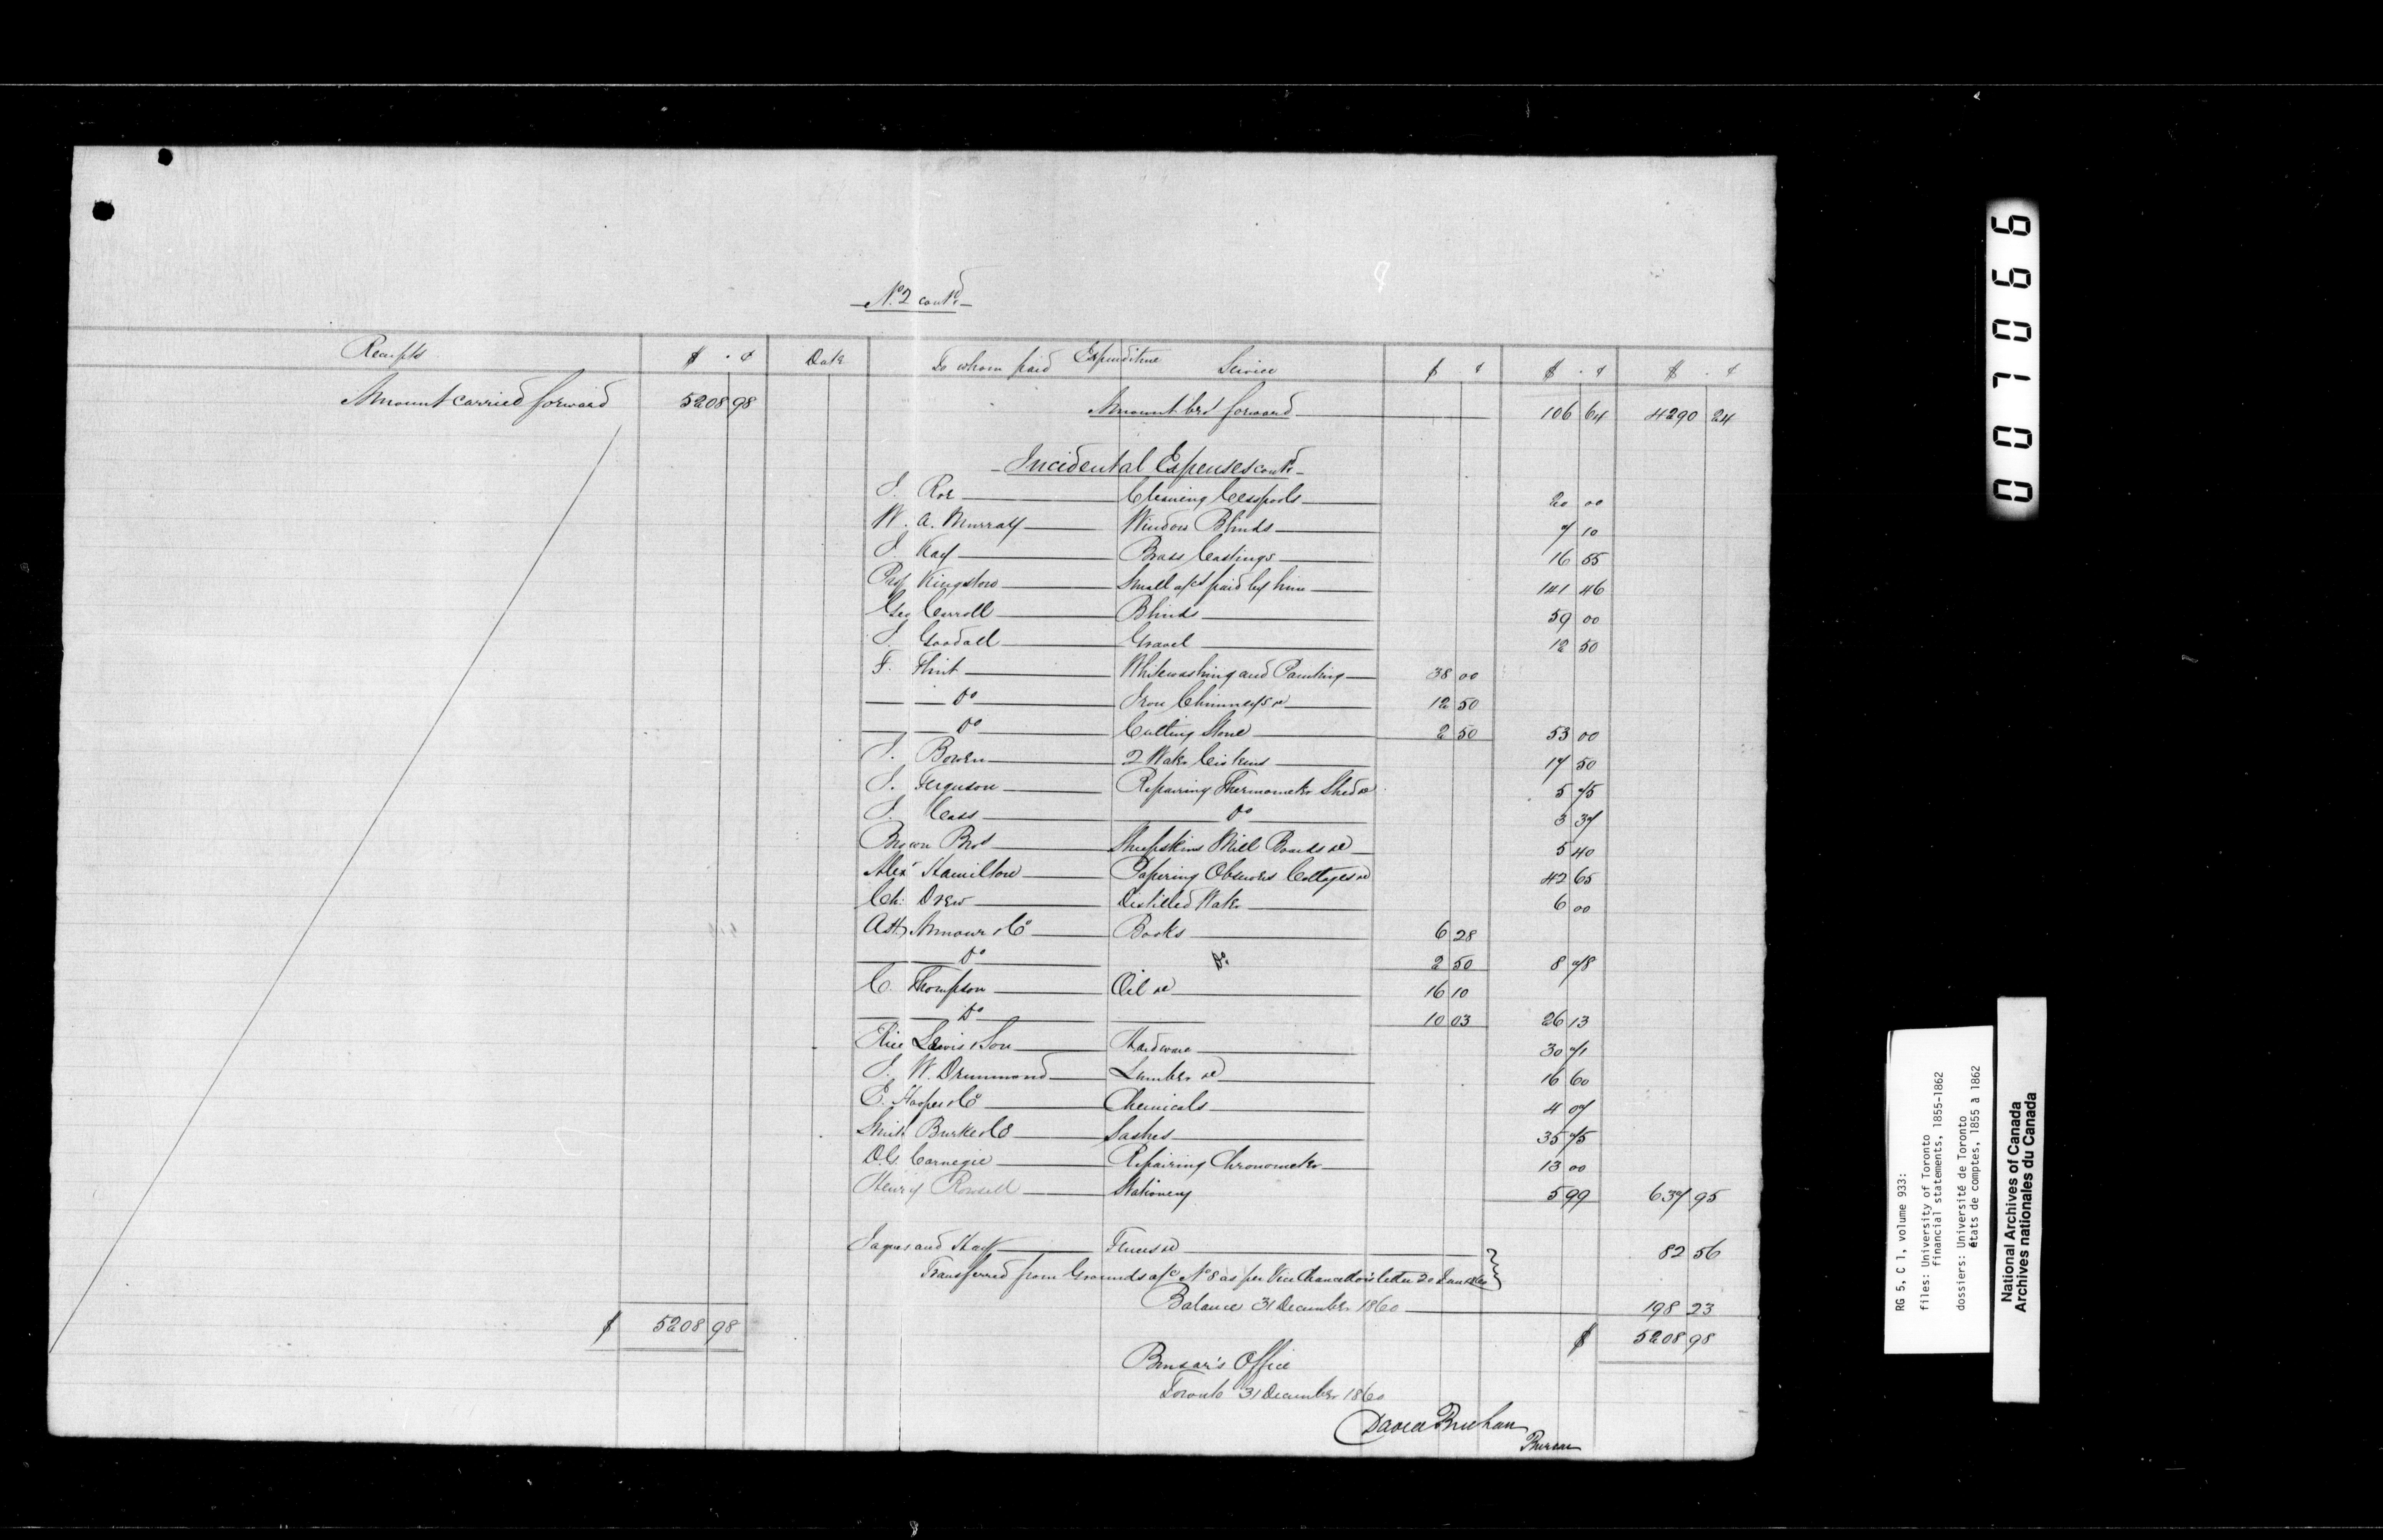 No. 2 contd
Receipts $ . ¢ Date To whom paid Expenditure Service $ ¢ $ . ¢ $ . ¢
Amount carried forward 5208 98 Amount brot forward 106 64 4290 24
Incidental Expenses contd
J. Roe Cleaning Cesspools 20 00
W. A. Murray Window Blinds 7 10
J. Kay Brass Castings 16 55
Prof Kingston Small a/cs paid by him 141 46
Geo Carroll Blinds 59 00
J. Goodall Gravel 12 50
F. Flint Whitewashing and Painting 38 00
Do Iron Chimneys &c 12 50
Do Cutting Stone 2 50 53 00
J. Bowen 2 Water Cisterns 17 50
J. Ferguson Repairing Thermometer Shed &c 5 75
J. Cass Do 3 37
Brown Bros Sheepskins Mill Boards &c 5 40
Alexr Hamilton Papering Observers Cottages &c 42 65
Ch. Drew Distilled Water 6 00
A H Armour & Co Books 6 28
Do Do 2 50 8 78
C. Thompson Oil &c 16 10
Do 10 03 26 13
Rice Lewis & Son Hardware 30 71
J. W. Drummond Lumber &c 16 60
E. Hooper & Co Chemicals 4 07
Smith Burke & Co Sashes 35 75
D.G. Carnegie Repairing Chronometer 13 00
Henry Rowsell Stationery 5 99 637 95
Jaques and Hay Fences &c 82 56
Transferred from Grounds a/c No 8 as per Vice Chancellor's letter 20 Jan 1860
Balance 31 December 1860 198 23
$ 5208 98 $ 5208 98
Bursar's Office
Toronto 31 December 1860
David Buchan
Bursar
007066
RG 5, C 1, volume 933:
files: University of Toronto
financial statements, 1855-1862
dossiers: Université de Toronto
états de comptes, 1855 à 1862
National Archives of Canada
Archives nationales du Canada